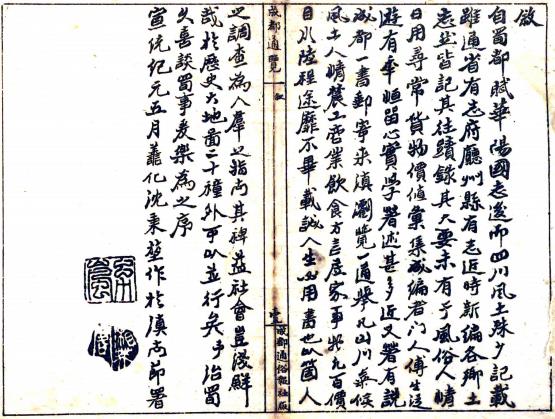 啟
自蜀都賦華陽國志後而四川風土殊少記載
雖通省有志府廳州縣有志近時新編各鄉土
志然皆記其往蹟錄其大要未有于風俗人情
日用尋常貨物價值彙集成編者門人傅生
游有年恒留心實學著述甚多近又著有說
成都一書郵寄來滇瀏覽一通舉凡山川氣候
風土人情農工商業飲食方言居家事物凡百價
目水陸程途靡不畢載誠人生必用書也以箇人
成都通覽
敘
成都通俗報社版
之調查為人羣之指南其裨益社會豈淺鮮
哉於歷史大地圖二十種外可以並行矣予治蜀
久喜談蜀事爰樂為之序
宣統紀元五月蕭化沈秉堃作於滇南節署